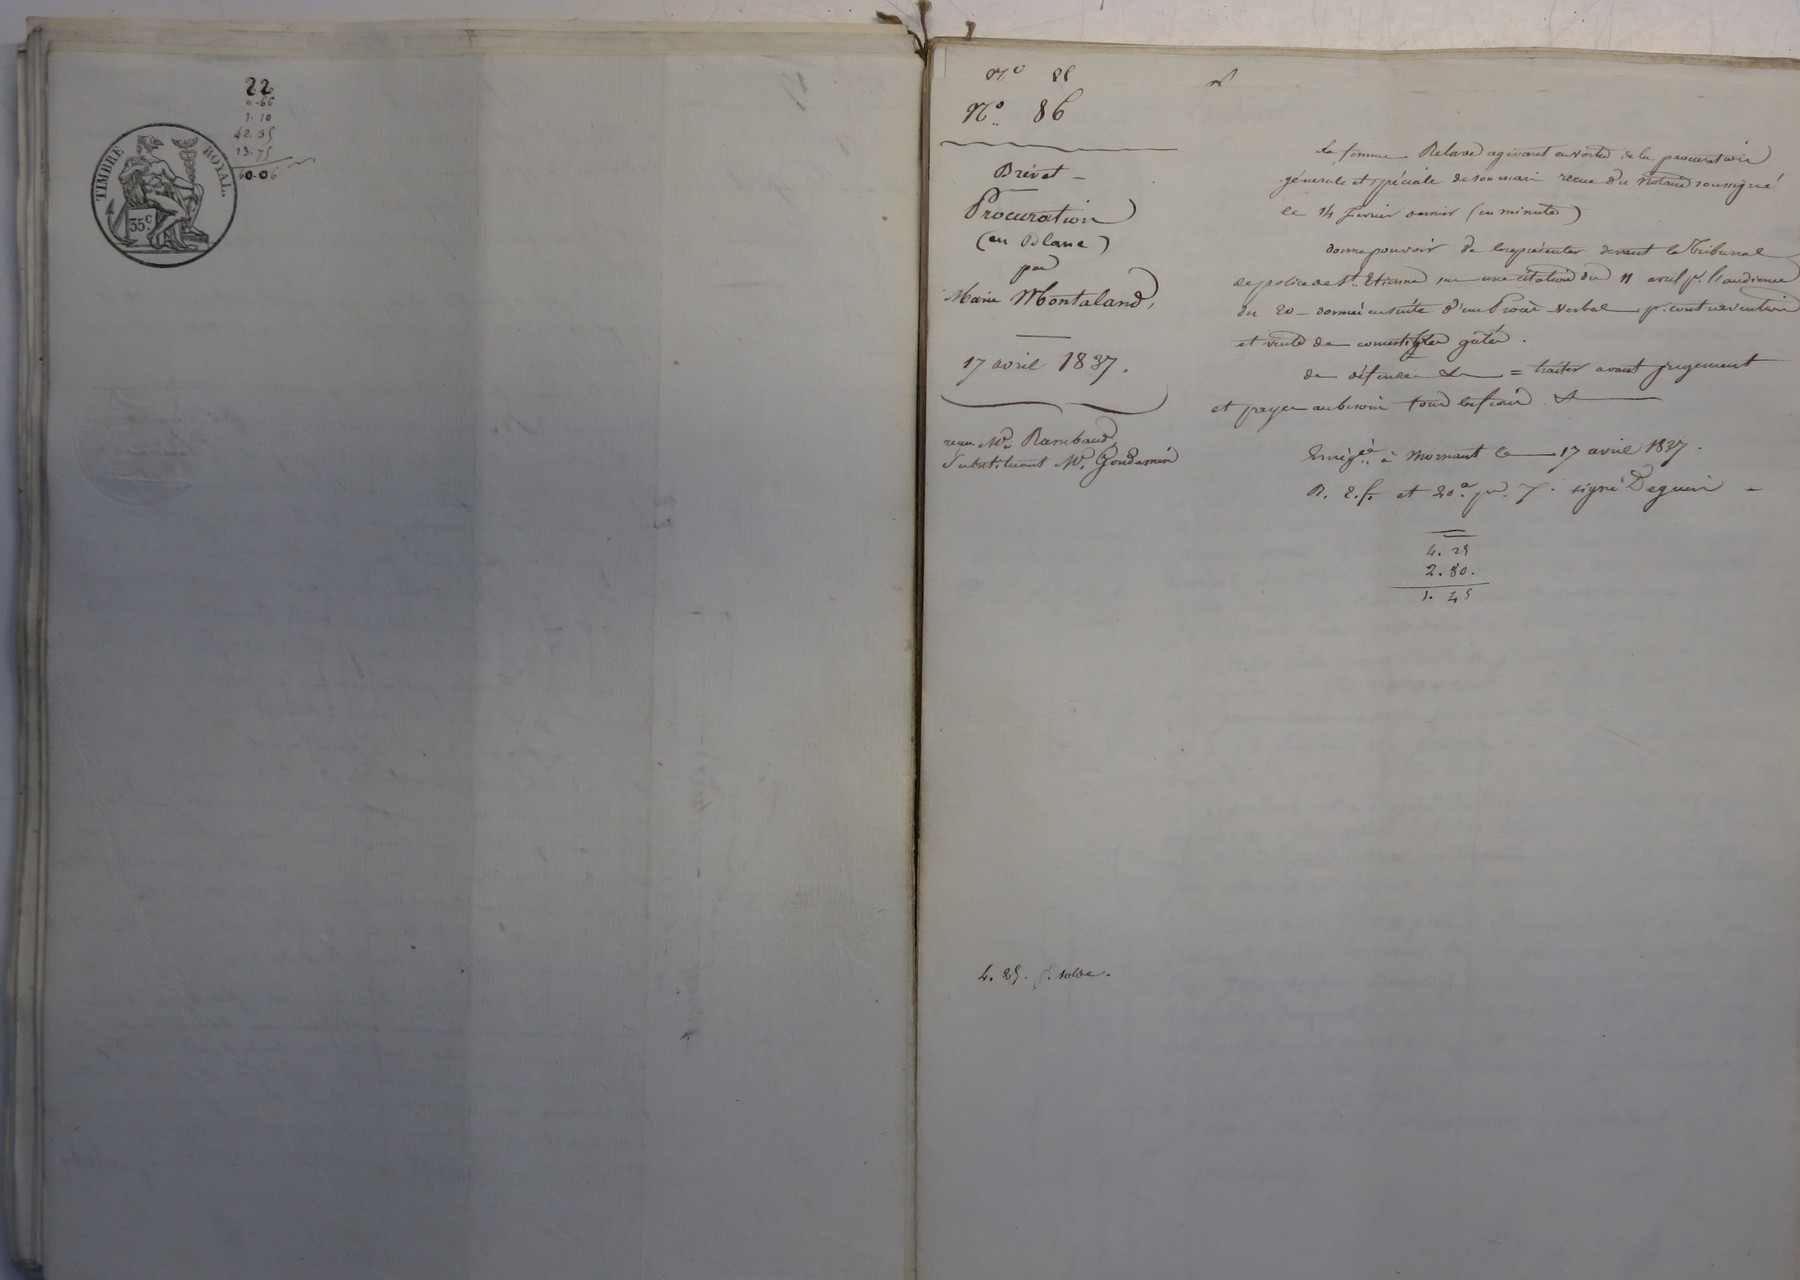 22
4.66
1.10
42.35
13.75
60.06
TIMBRE ROYAL.
35 c.
N° 
N° 86
Brevet
Procuration
(en Blanc)
par
Marie Montaland,
17 avril 1837.
recu Me Rambaud,
Substituant Me Gondamin
la femme Relave agissant en vertu de la procuration
générale et spéciale de son mari recue du Notaire soussigné
le 14 fevrier dernier (en minute)
donne pouvoir de la représenter devant le Tribunal
de police de St. Etienne sur une citation du 11 avril pr. l'audience
du 20 - donnée ensuite d'un Procès Verbal pr. contravention
et vente de comestibles gâtés.
de défendre & = traiter avant jugement
et payer au besoin tous les frais &
Enrégé. à Mornant le 17 avril 1837.
R. 2 f. et 20 c. pr. signé Deguin -
4. 25
2. 80.
1. 45
4. 25. p. solde.